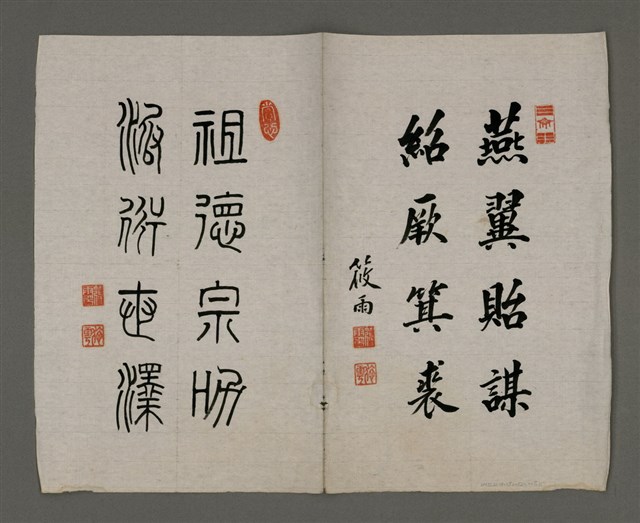 燕翼貽謀
紹厥箕裘
筱雨
祖德宗功
源衍世澤